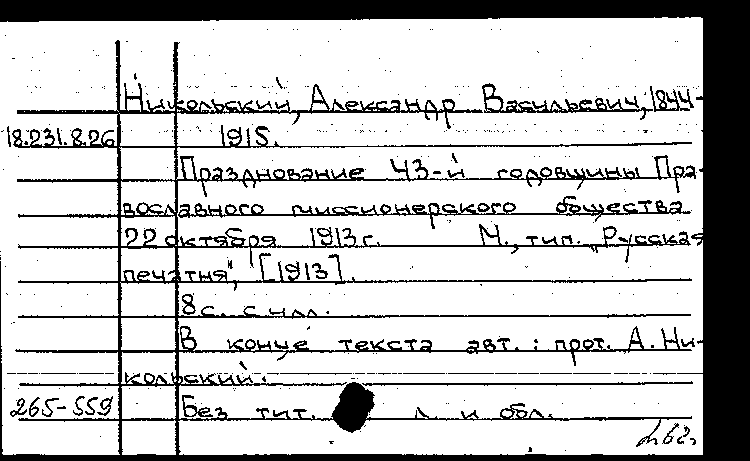 Никольский, Александр Васильевич, 1844-
18.231.8.26 1915.
Празднование 43-й годовщины Пра-
вославного миссионерского общества
22 октября 1913 г. М., тип. „Русская
печатня", [1913].
8 с. с илл.
В конце текста авт.: прот. А. Ни-
кольский.
265-559 Без тит. л. и обл.